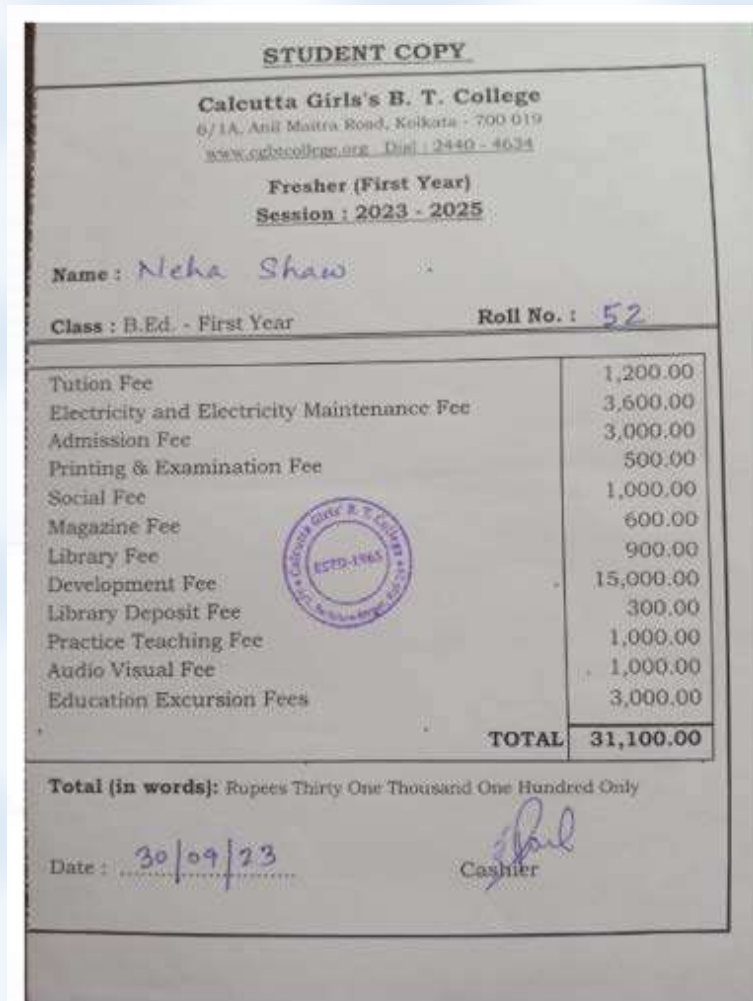 STUDENT COPY
Calcutta Girls's B. T. College
6/1A, Anil Maitra Road, Kolkata - 700 019
www.cgbtcollege.org Dial : 2440 - 4634
Fresher (First Year)
Session : 2023 - 2025
Name : Neha Shaw
Class : B.Ed. - First Year Roll No. : 52
Tution Fee 1,200.00
Electricity and Electricity Maintenance Fee 3,600.00
Admission Fee 3,000.00
Printing & Examination Fee 500.00
Social Fee 1,000.00
Magazine Fee 600.00
Library Fee 900.00
Development Fee 15,000.00
Library Deposit Fee 300.00
Practice Teaching Fee 1,000.00
Audio Visual Fee 1,000.00
Education Excursion Fees 3,000.00
Calcutta Girls' B. T. College
ESTD-1965
TOTAL 31,100.00
Total (in words): Rupees Thirty One Thousand One Hundred Only
Date : 30/09/23
Cashier